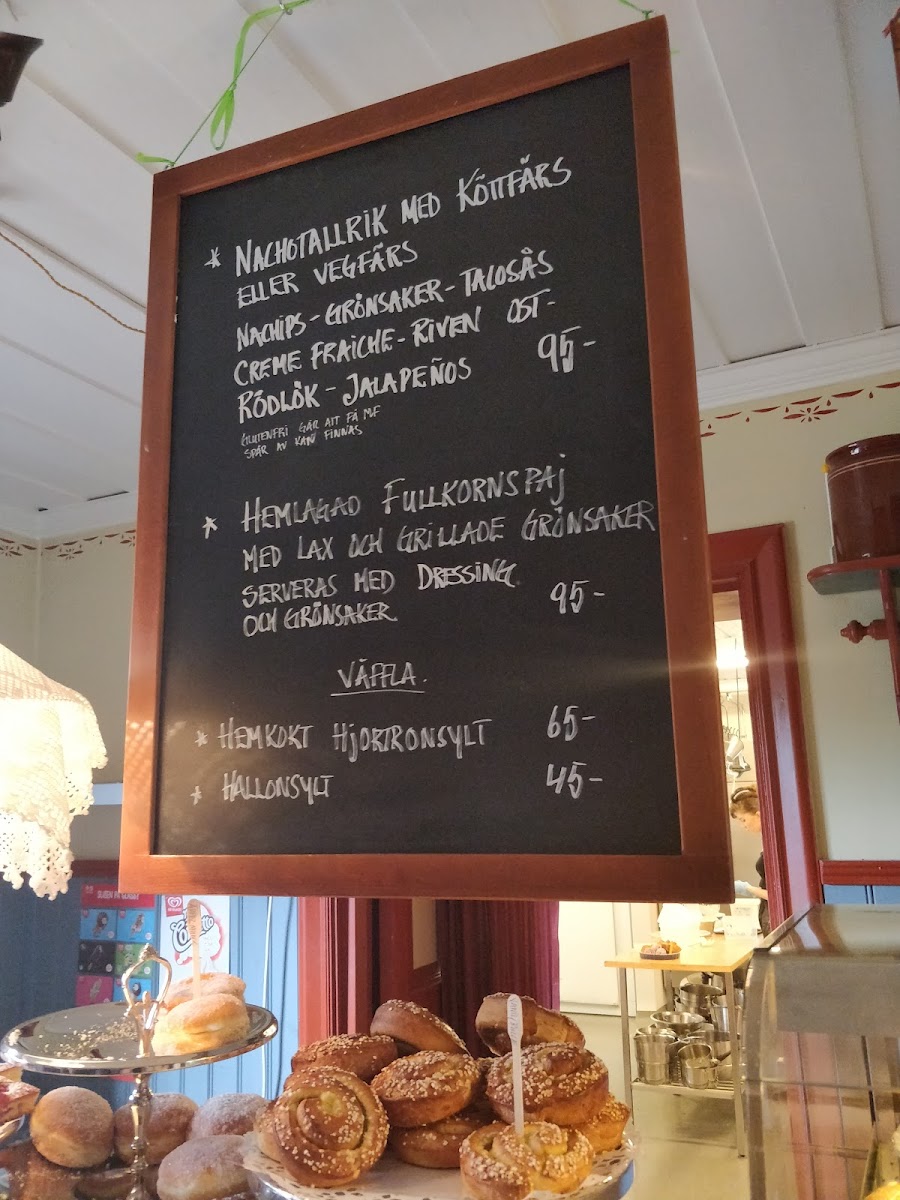 * NACHOTALLRIK MED KÖTTFÄRS
ELLER VEGFÄRS
NACHIPS - GRÖNSAKER - TACOSÅS
CREME FRAICHE - RIVEN OST -
RÖDLÖK - JALAPEÑOS 95-
GLUTENFRI GÅR ATT FÅ MF
SPÅR AV KAN FINNAS
* HEMLAGAD FULLKORNSPAJ
MED LAX OCH GRILLADE GRÖNSAKER
SERVERAS MED DRESSING
OCH GRÖNSAKER 95-
VÄFFLA.
* HEMKOKT HJORTRONSYLT 65-
* HALLONSYLT 45-